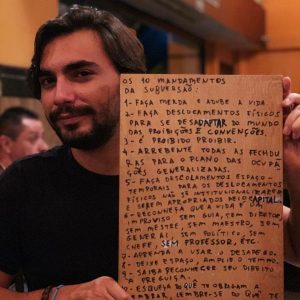 OS 10 MANDAMENTOS
DA SUBVERSÃO:
1- FAÇA MERDA E ADUBE A VIDA
2- FAÇA DESLOCAMENTOS FÍSICOS
PARA SE DESADAPTAR DO MUNDO
DAS PROIBIÇÕES E CONVENÇÕES.
3- É PROIBIDO PROIBIR.
4- ARREBENTE TODAS AS FECHDU
RAS PARA O PLANO DAS OCUPA
ÇÕES GENERALIZADAS.
5- FAÇA DESLOCAMENTOS ESPAÇO-
TEMPORAIS PARA OS DESLOCAMENTOS
FÍSICOS NÃO SE INSTITUCIONALIZAREM
E SEREM APROPRIADOS PELO CAPITAL.
6- RECONHEÇA QUE A VIDA É UM
IMPROVISO SEM GUIA, SEM DIRETOR
SEM MESTRE, SEM MAESTRO, SEM
GENERAL, SEM POLÍTICO, SEM
CHEFE, SEM PROFESSOR, ETC.
7- APRENDA A USAR O DESAPEGO
8- DEIXE ESPAÇO, AMPLIE O TEMPO
9- SAIBA RECONHECER SEU DIREITO
À PREGUIÇA.
10- ESQUEÇA O QUE TE OBRIGAM A
LEMBRAR, LEMBRE-SE DO QUE TE